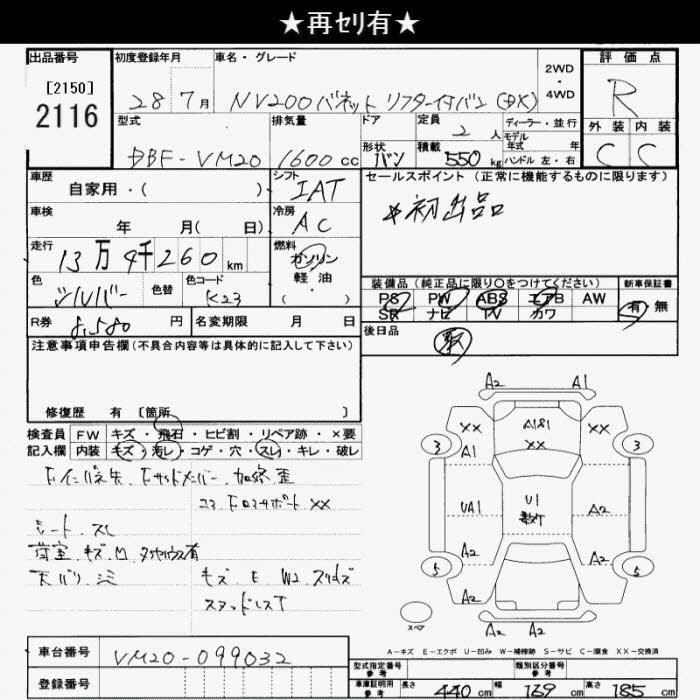 ★再ｾﾘ有★
出品番号 初度登録年月 車名・グレード 2WD 4WD 評価点
[2150]
2116
28 7月 NV200バネット リフター付バン(DX) R
型式 排気量 ドア 定員 2人 ディーラー・並行 外装 内装
モデル年式 年
形状 積載
DBF-VM20 1600cc バン 550kg ハンドル 左・右 C C
車歴 シフト セールスポイント (正常に機能するものに限ります)
自家用・( ) IAT
*初出品
車検 冷房
年 月( 日) AC
走行 燃料
13万4千260km ガソリン
軽油
・( )
色 色替 色コード 装備品 (純正品に限り○をつけてください) 新車保証書
シルバー K23 PS PW ABS エアB AW 有・無
SR ナビ TV カワ
R券 8,580円 名変期限 月 日 後日品
注意事項申告欄 (不具合内容等は具体的に記入して下さい)
修復歴 有 [箇所 ]
検査員 FW キズ・飛石・ヒビ割・リペア跡・×要
記入欄 内装 キズ・汚レ・コゲ・穴・スレ・キレ・破レ
コアF ロアサポート ××
シート スレ
荷室 キズ M タイヤハウス有
天バリ シミ キズ E W2 スリキズ
スタッドレスT
A2 A1
×× A1 A181 ×× ××
3 3
UA1 U1 A2
A2 A2
5 5
A2 A2
スペア
A2 A2
A-キズ E-エクボ U-凹み W-補修跡 S-サビ C-腐食 XX-交換済
車台番号 VM20-099032 型式指定番号 参考 類別区分番号 参考
登録番号 車庫証明用 参考 長さ 440cm 幅 139cm 高さ 185cm